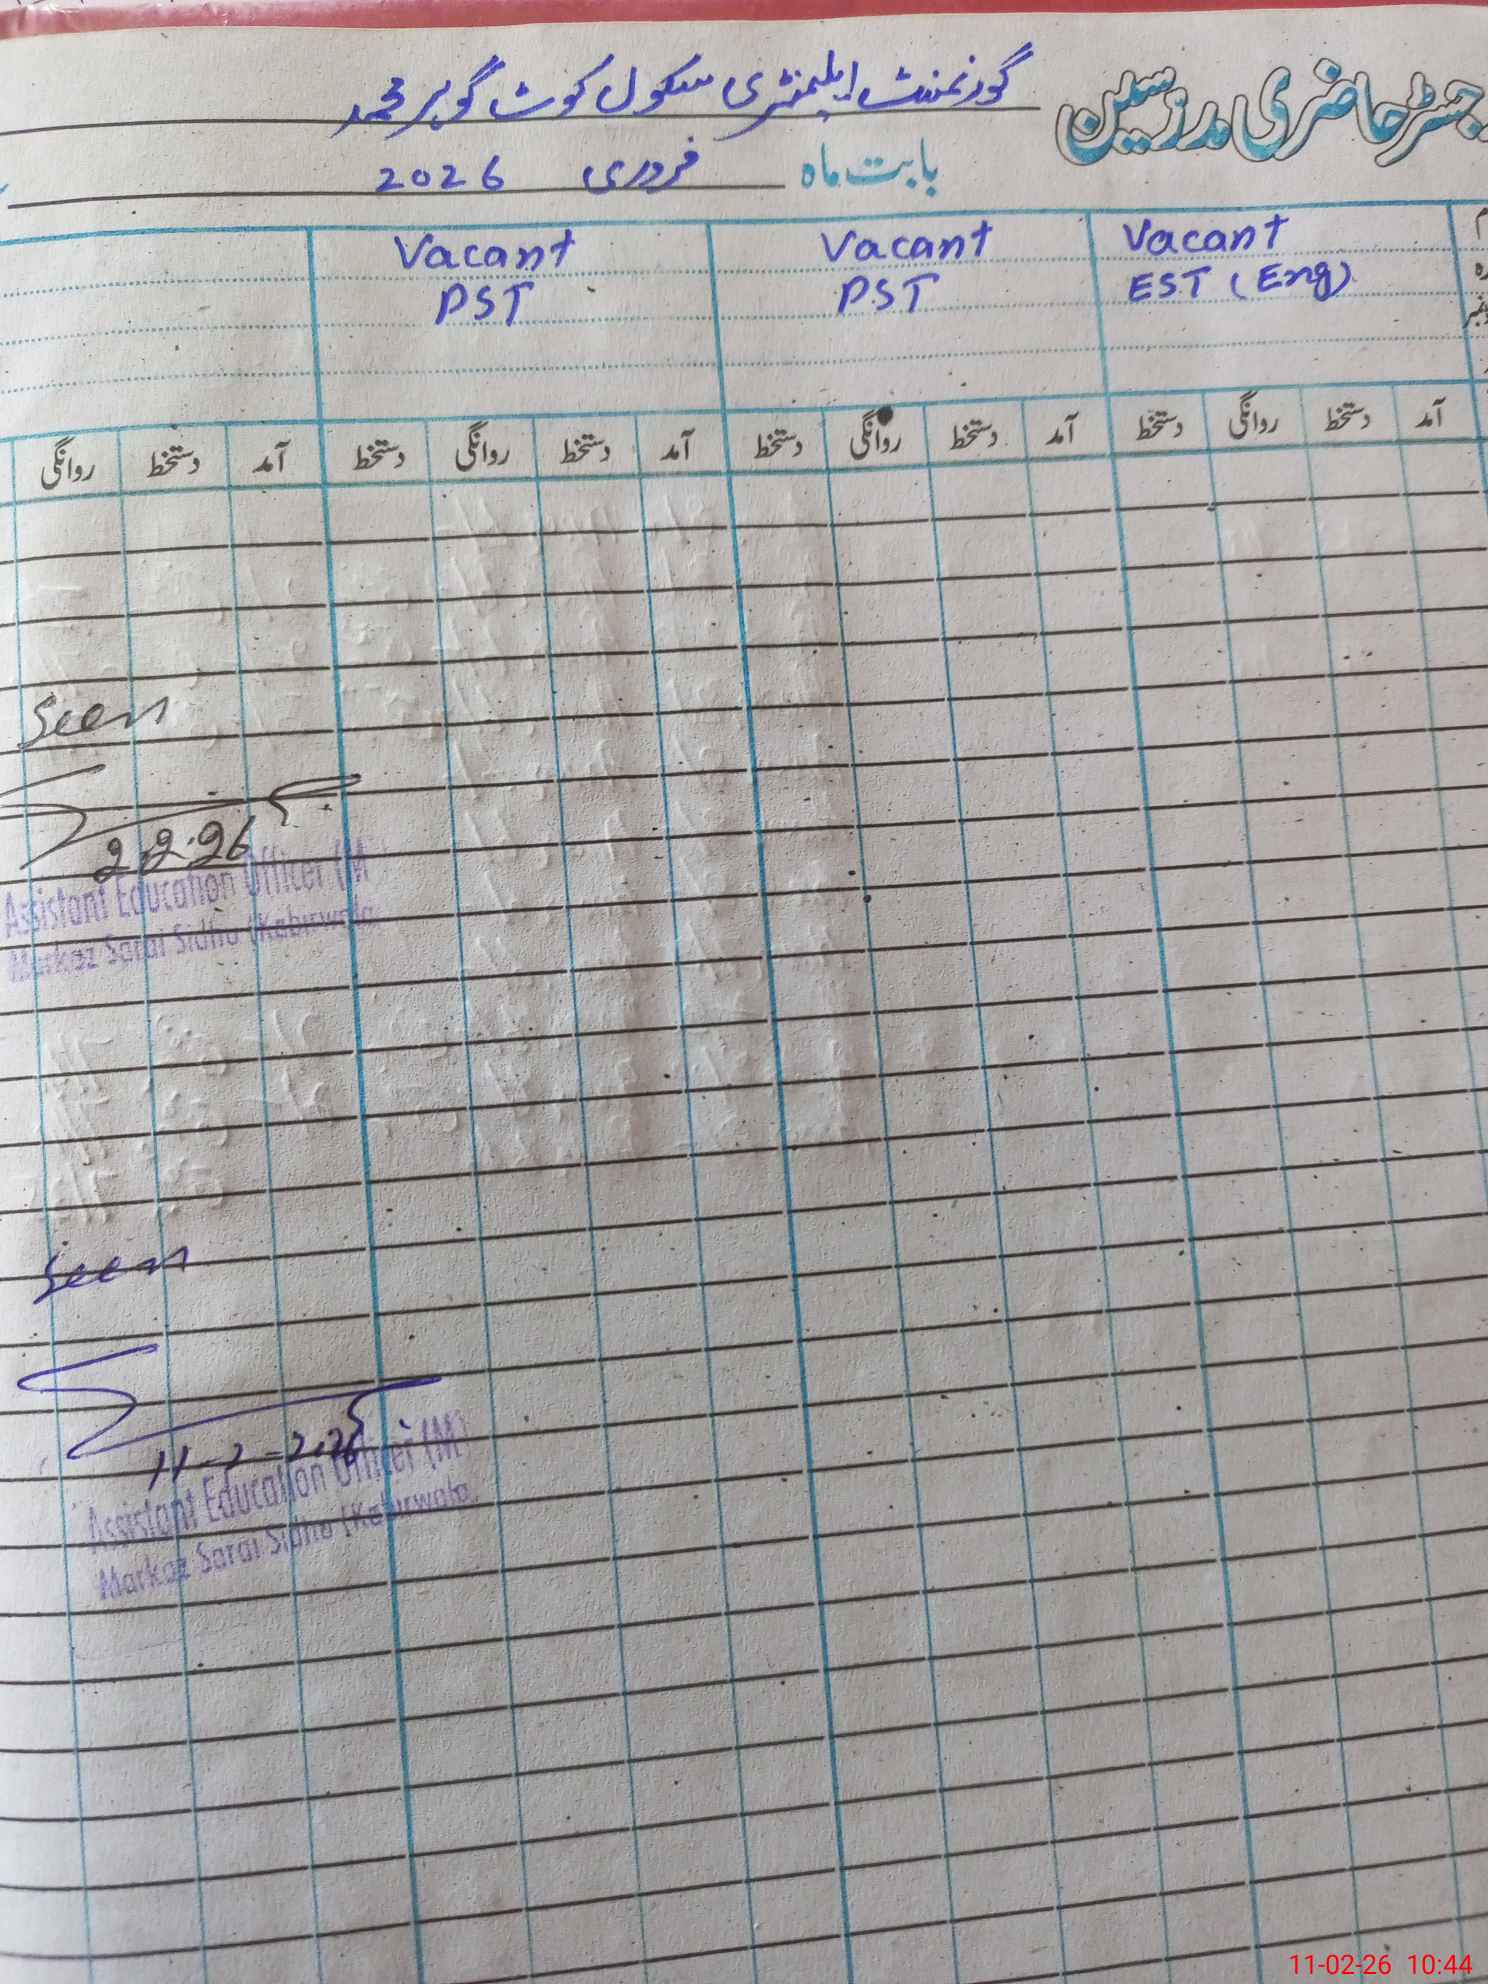 رجسٹر حاضری مدرسین گورنمنٹ ایلیمنٹری سکول کوٹ گوہر محمد
بابت ماہ فروری 2026
Vacant
EST (Eng)
Vacant
PST
Vacant
PST
آمد دستخط روانگی دستخط آمد دستخط روانگی دستخط آمد دستخط روانگی دستخط آمد دستخط روانگی
Seen
2.2.26
Assistant Education Officer (M
Markaz Sarai Sidhu (Kabirwala
Seen
11-2-2026
Assistant Education Officer (M)
Markaz Sarai Sidhu (Kabirwala
11-02-26 10:44